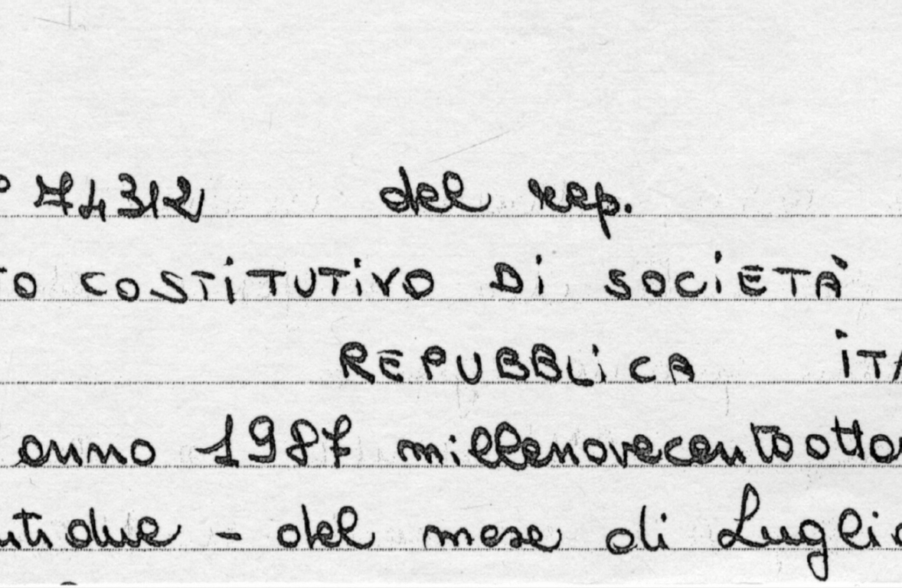 ° 74312 del rep.
TO COSTITUTIVO DI SOCIETÀ
REPUBBLICA ITA
anno 1987 millenovecentootton
ntidue - del mese di Luglio